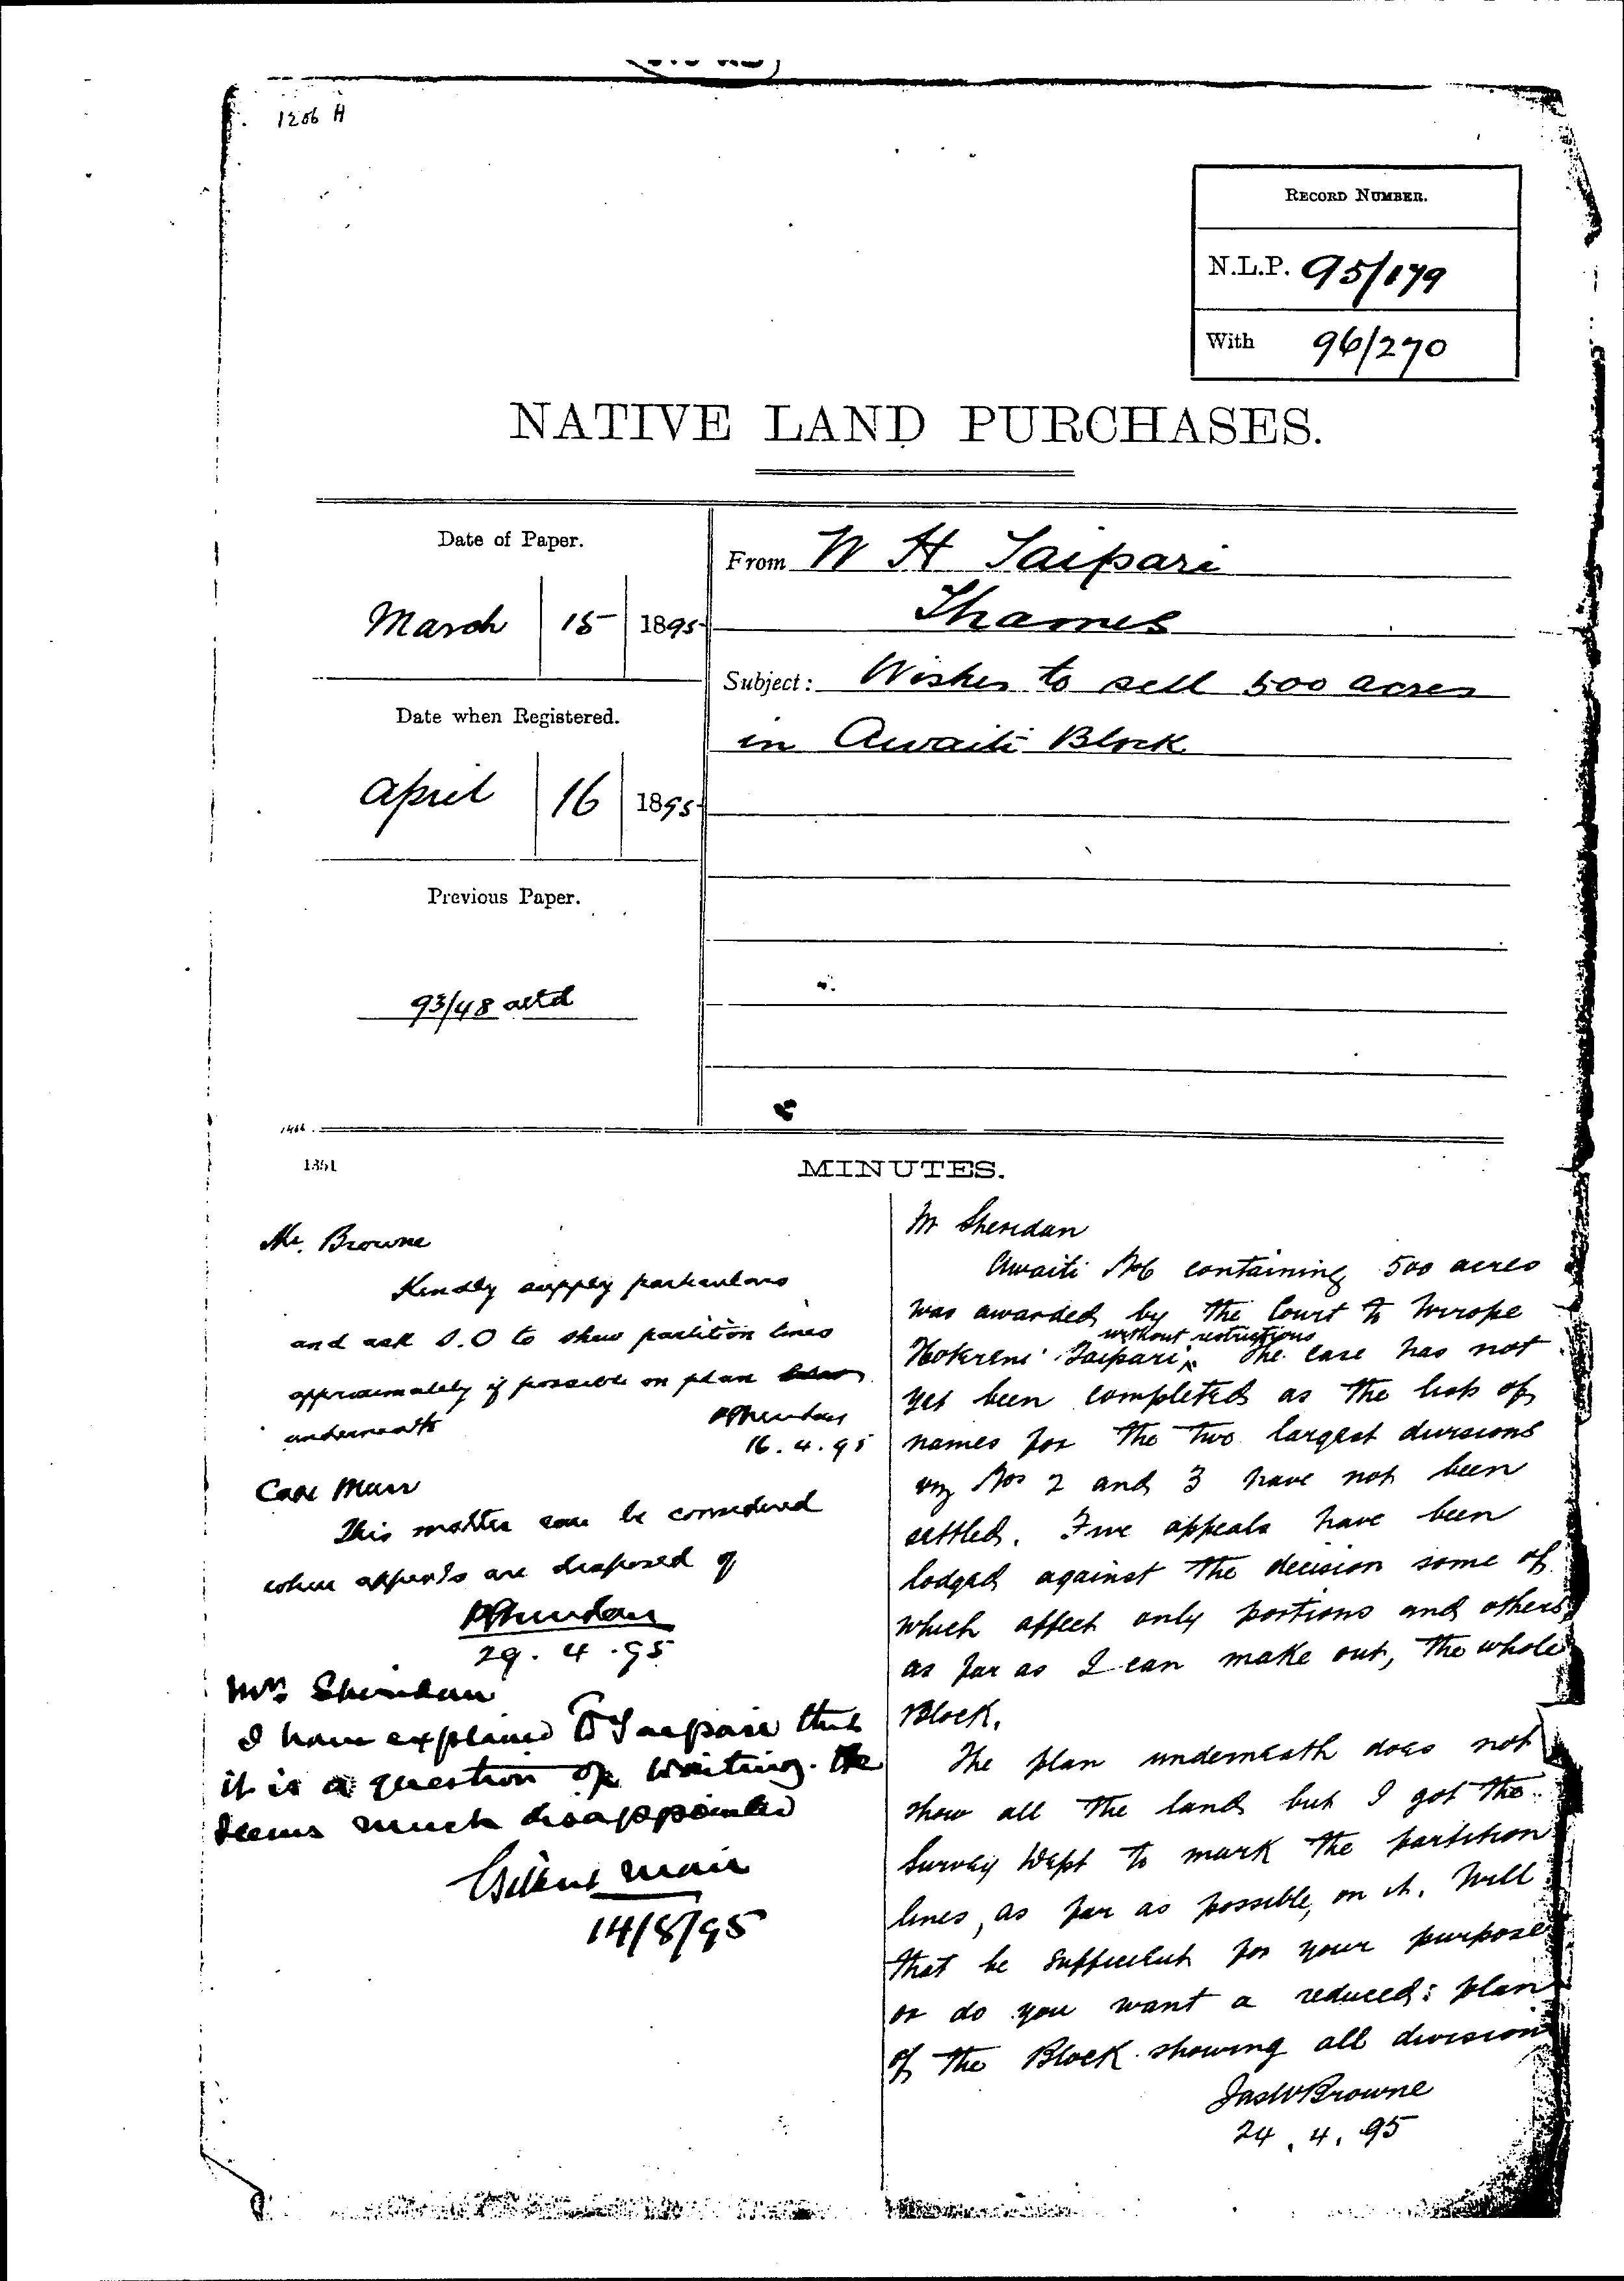 1206 H
RECORD NUMBER.
N.L.P. 95/179
With 96/270
NATIVE LAND PURCHASES.
Date of Paper.
March 15 1895
Date when Registered.
April 16 1895
Previous Paper.
93/48 attd
From W H Taipari
Thames
Subject: Wishes to sell 500 acres
in Awaiti Block
1351
MINUTES.
Mr. Browne
Kindly supply particulars
and ask S.O to shew partition lines
approximately if possible on plan
underneath
PSheridan
16.4.95
Capt Mair
This matter can be considered
when appeals are disposed of
PSheridan
29.4.95
Mr. Sheridan
I have explained to Taipari that
it is a question of waiting. He
seems much disappointed
Gilbert Mair
14/8/95
Mr Sheridan
Awaiti No6 containing 500 acres
was awarded by the Court to Wirope
Hoterene Taipari without restrictions. The case has not
yet been completed as the lists of
names for the two largest divisions
viz Nos 2 and 3 have not been
settled. Five appeals have been
lodged against the decision some of
which affect only portions and others,
as far as I can make out, the whole
Block.
The plan underneath does not
show all the land but I got the
Survey Dept to mark the partition
lines, as far as possible, on it. Will
that be sufficient for your purpose
or do you want a reduced plan
of the Block showing all division
JasWBrowne
24.4.95